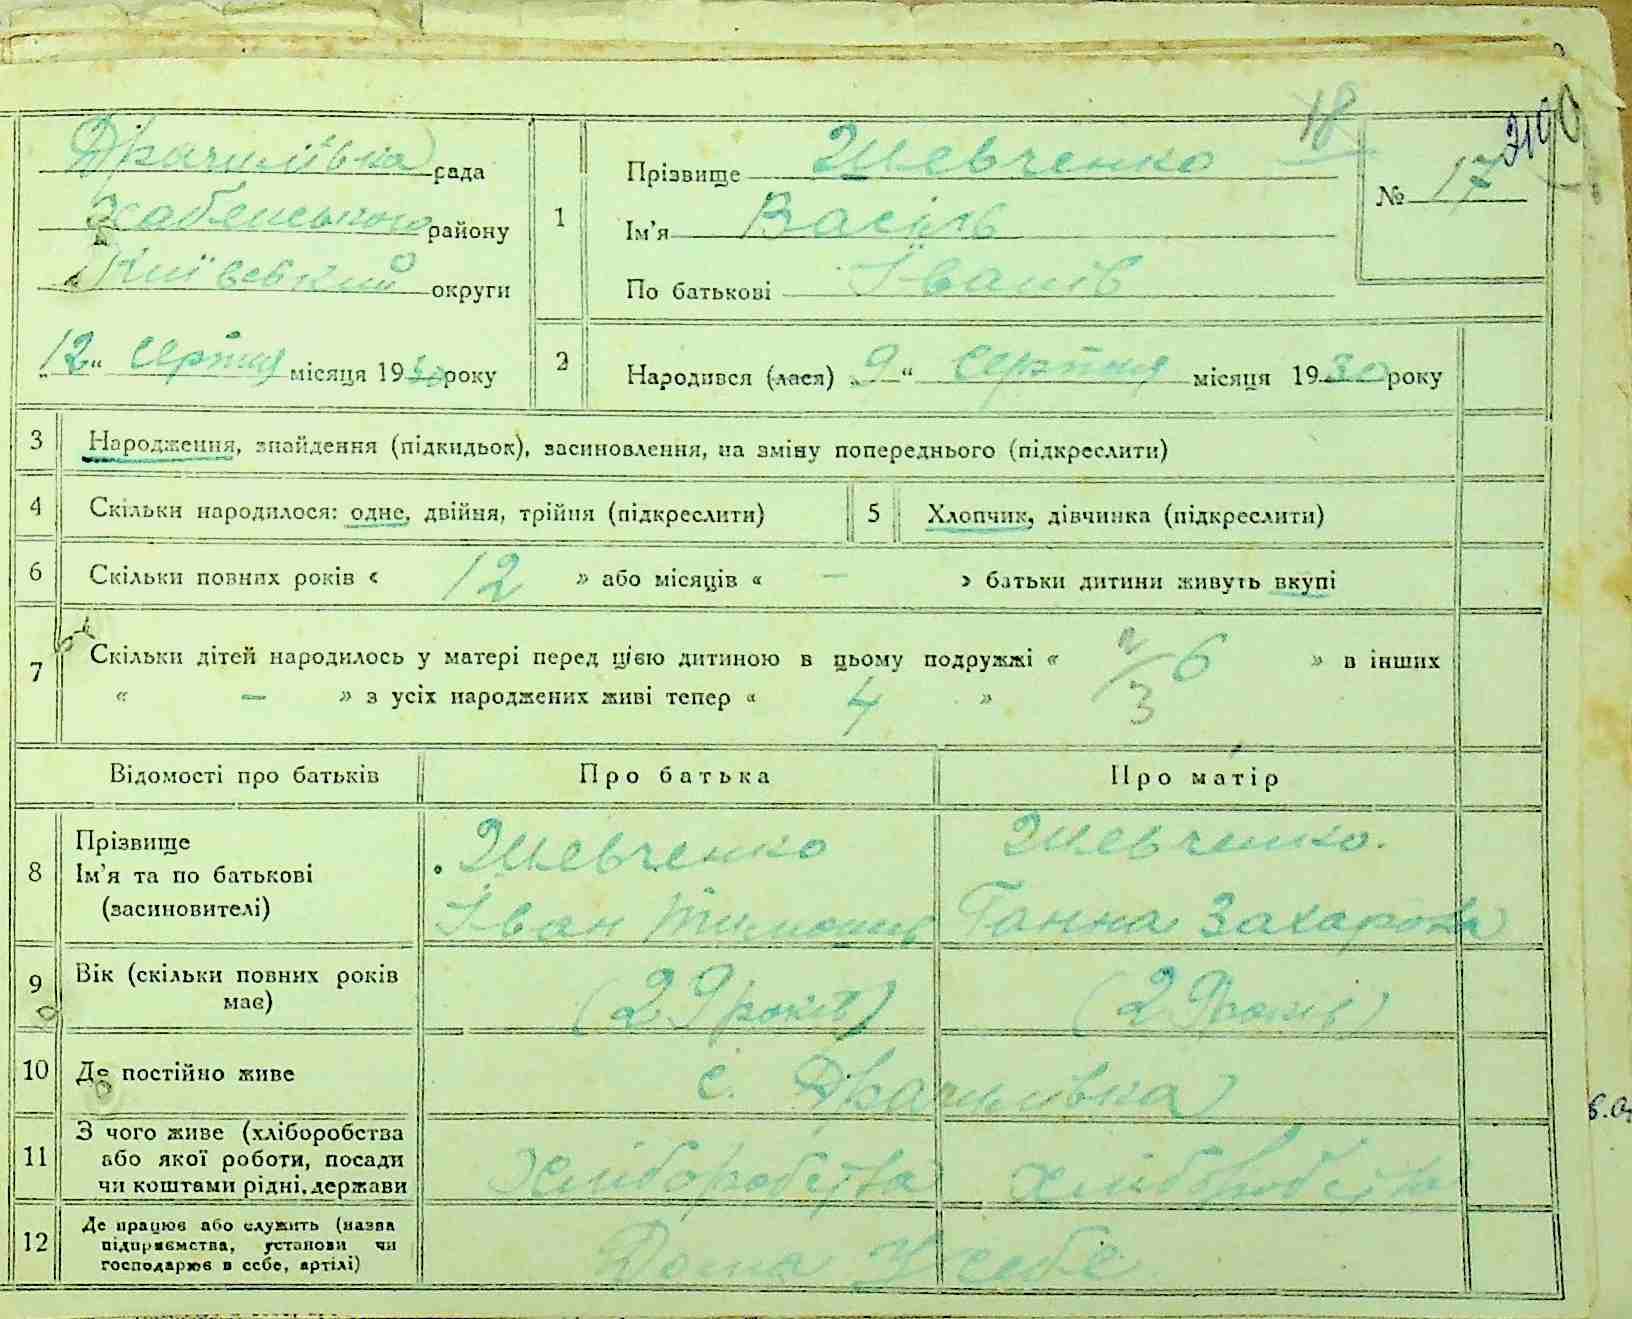 18
Драчилівка рада
Хабенського району
Київський округи
„12“ серпня місяця 1930 року
1
Прізвище Шевченко
Ім'я Васіль
По батькові Іванів
№ 17
2
Народився (лася) „9“ Серпня місяця 1930 року
3 Народження, знайдення (підкидьок), засиновлення, на зміну попереднього (підкреслити)
4 Скільки народилося: одне, двійня, трійня (підкреслити) 5 Хлопчик, дівчинка (підкреслити)
6 Скільки повних років « 12 » або місяців « – » батьки дитини живуть вкупі
7 Скільки дітей народилось у матері перед цією дитиною в цьому подружжі « 6 » в інших
« – » з усіх народжених живі тепер « 4 » 3
Відомості про батьків Про батька Про матір
8 Прізвище
Ім'я та по батькові
(засиновителі)
Шевченко
Іван
Шевченко.
Ганна Захарова
9 Вік (скільки повних років
має)
(29 років) (29 років)
10 Де постійно живе с. Драчилівка
11 З чого живе (хліборобства
або якої роботи, посади
чи коштами рідні, держави
Хліборобства Хліборобства
12 Де працює або служить (назва
підприємства, установи чи
господарює в себе, артілі)
Дома У себе